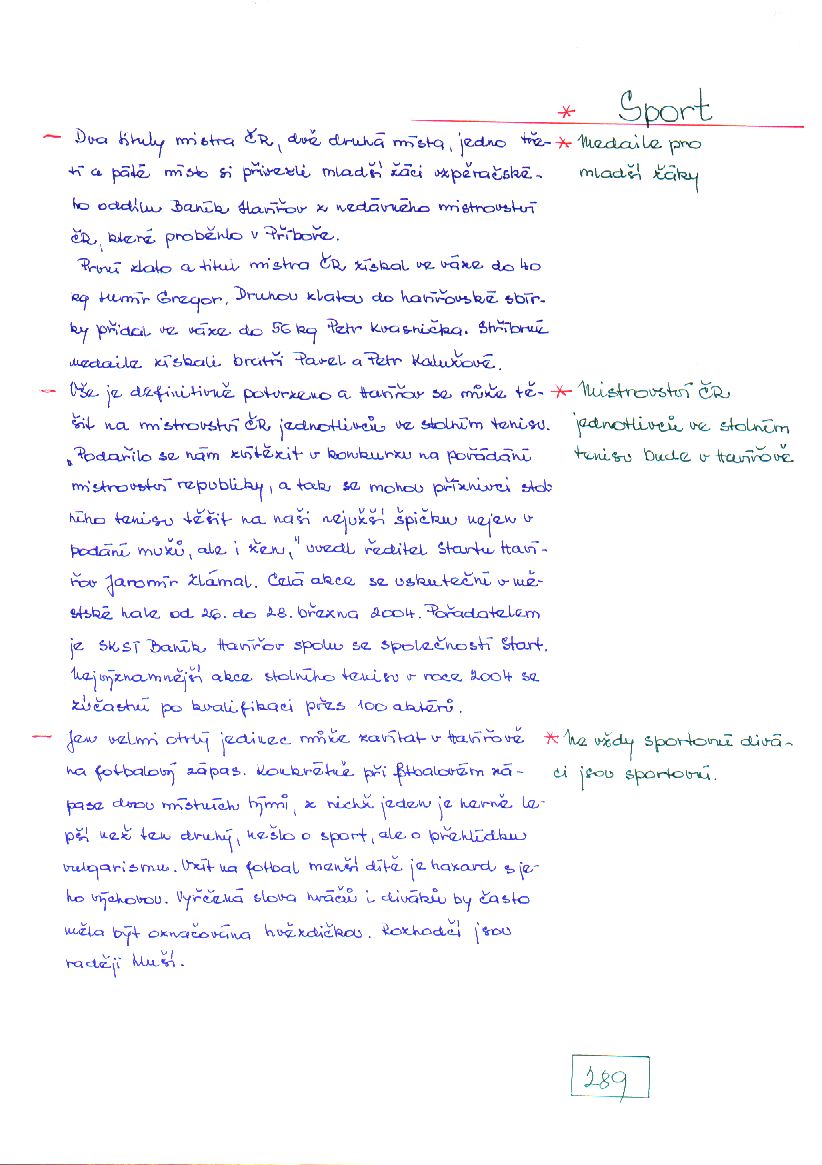 * Sport
– Dva tituly mistra ČR, dvě druhá místa, jedno tře-
tí a páté místo si přivezli mladší žáci vzpěračské-
ho oddílu Baník Havířov z nedávného mistrovství
ČR, které proběhlo v Příboře.
První zlato a titul mistra ČR získal ve váze do 40
kg Gregor. Druhou zlatou do havířovské sbír-
ky přidal ve váze do 56 kg Petr Kvasnička. Stříbrné
medaile získali bratři Pavel a Petr Kalužové.
* Medaile pro
mladší žáky
– Vše je definitivně potvrzeno a Havířov se může tě-
šit na mistrovství ČR jednotlivců ve stolním tenisu.
„Podařilo se nám zvítězit v konkurzu na pořádání
mistrovství republiky, a tak se mohou příznivci stol
ního tenisu těšit na naši nejužší špičku nejen v
podání mužů, ale i žen,“ uvedl ředitel Startu Haví-
řov Jaromír Zlámal. Celá akce se uskuteční v mě-
stské hale od 26. do 28. března 2004. Pořadatelem
je SKST Baník Havířov spolu se společností Start.
Nejvýznamnější akce stolního tenisu v roce 2004 se
zúčastní po kvalifikaci přes 100 aktérů.
* Mistrovství ČR
jednotlivců ve stolním
tenisu bude v Havířově
– Jen velmi otrlý jedinec může zavítat v Havířově
na fotbalový zápas. Konkrétně při fotbalovém zá-
pase dvou místních týmů, z nichž jeden je herně le-
pší než ten druhý, nešlo o sport, ale o přehlídku
vulgarismu. Vzít na fotbal menší dítě je hazard s je-
ho výchovou. Vyřčená slova hráčů i diváků by často
měla být označována hvězdičkou. Rozhodčí jsou
raději hluší.
* Ne vždy sportovní divá-
ci jsou sportovní.
289